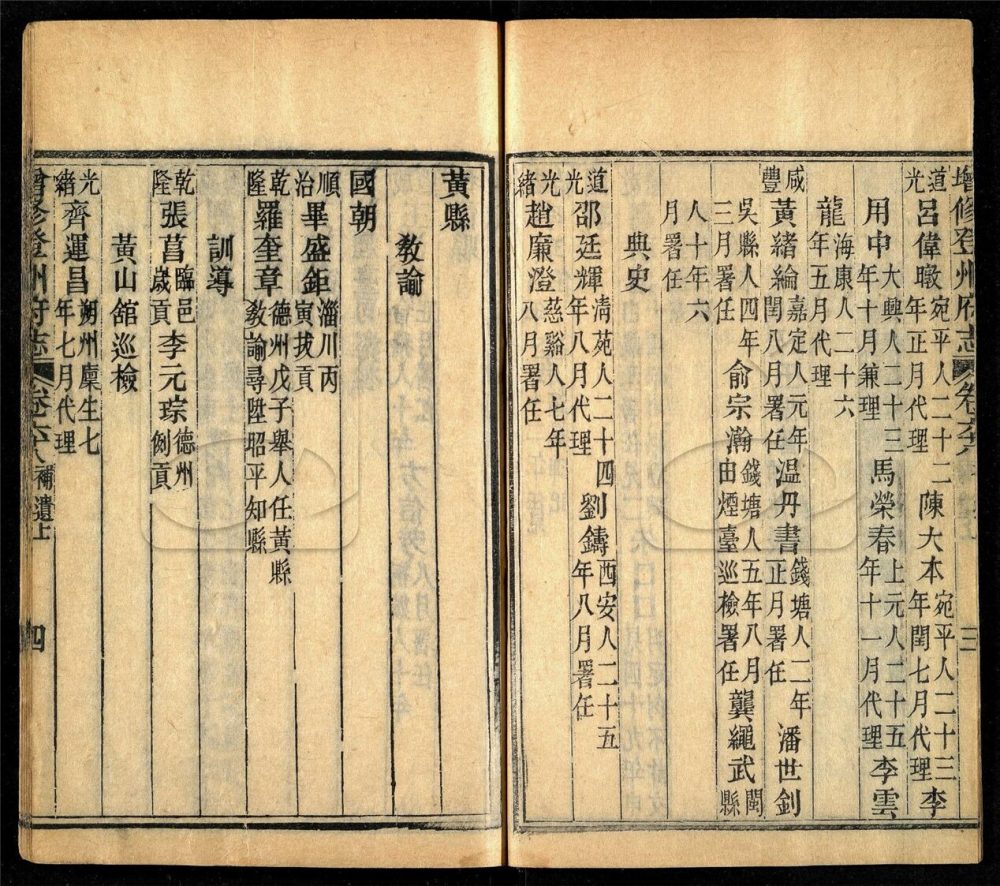 增修登州府志 卷六 三
道光 呂偉暾 宛平人二十二年正月代理 陳大本 宛平人二十三年閏七月代理 李
用中 大興人二十三年十月兼理 馬榮春 上元人二十五年十一月代理 李雲
龍 海康人二十六年五月代理
咸豐 黃緒綸 嘉定人元年閏八月署任 溫丹書 錢塘人二年正月署任 潘世釗
吳縣人四年三月署任 俞宗瀚 錢塘人五年八月由煙臺巡檢署任 龔繩武 閩縣
人十年六月署任
典史
道光 邵廷輝 清苑人二十四年八月代理 劉鑄 西安人二十五年八月署任
光緒 趙廉澄 慈谿人七年八月署任
黃縣
教諭
國朝
順治 畢盛鉅 淄川丙寅拔貢
乾隆 羅奎章 德州戊子舉人任黃縣教諭尋陞昭平知縣
訓導
乾隆 張菖 臨邑歲貢 李元琮 德州例貢
黃山館巡檢
光緒 齊運昌 朔州廩生七年七月代理
增修登州府志 卷六八 補遺上 四